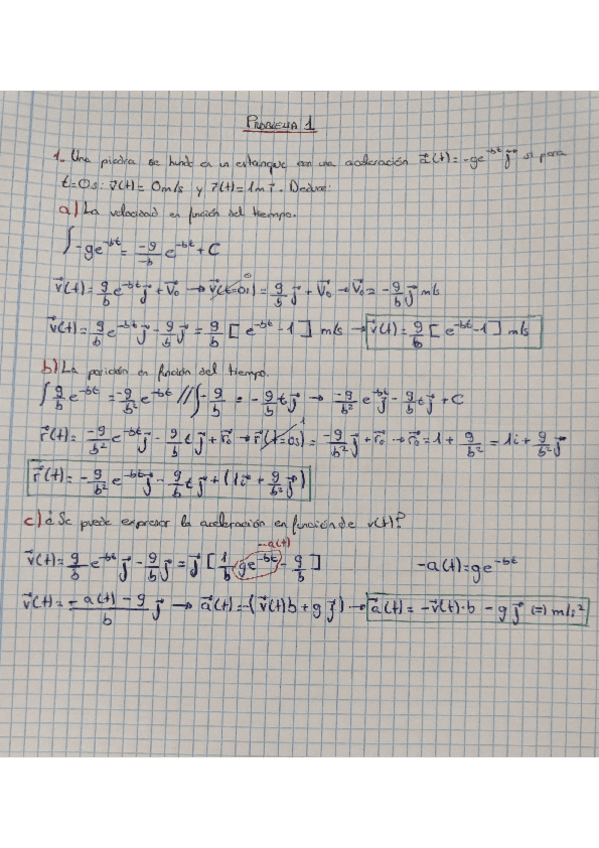 PROBLEMA 1
1.- Una piedra se hunde en un estanque con una aceleración a⃗(t) = -ge^{-bt} j⃗ si para
t=0s: v⃗(t)= 0m/s y r⃗(t)= 1m i⃗. Deduce:
a) La velocidad en función del tiempo.
∫-ge^{-bt} = -g/-b e^{-bt} + C
v⃗(t)= g/b e^{-bt} j⃗ + v⃗₀ → v⃗(t=0s) 0 = g/b j⃗ + v⃗₀ → v⃗₀ = -g/b j⃗ m/s
v⃗(t)= g/b e^{-bt} j⃗ - g/b j⃗ = g/b [e^{-bt} - 1] m/s → v⃗(t)= g/b [e^{-bt} - 1] m/s
b) La posición en función del tiempo.
∫ g/b e^{-bt} = -g/b² e^{-bt} // ∫ -g/b = -g/b t j⃗ → -g/b² e^{-bt} j⃗ - g/b t j⃗ + C
r⃗(t)= -g/b² e^{-bt} j⃗ - g/b t j⃗ + r⃗₀ → r⃗(t=0s) 1 = -g/b² j⃗ + r⃗₀ → r⃗₀ = 1 + g/b² = 1i + g/b² j⃗
r⃗(t)= -g/b² e^{-bt} j⃗ - g/b t j⃗ + (1i⃗ + g/b² j⃗)
c) ¿Se puede expresar la aceleración en función de v(t)?
-a(t)
v⃗(t)= g/b e^{-bt} j⃗ - g/b j⃗ = j⃗ [1/b ge^{-bt} - g/b] -a(t)=ge^{-bt}
v⃗(t)= -a(t) - g / b j⃗ → a⃗(t)= -(v⃗(t)b + g j⃗) → a⃗(t)= -v⃗(t)·b - g j⃗ (=) m/s²